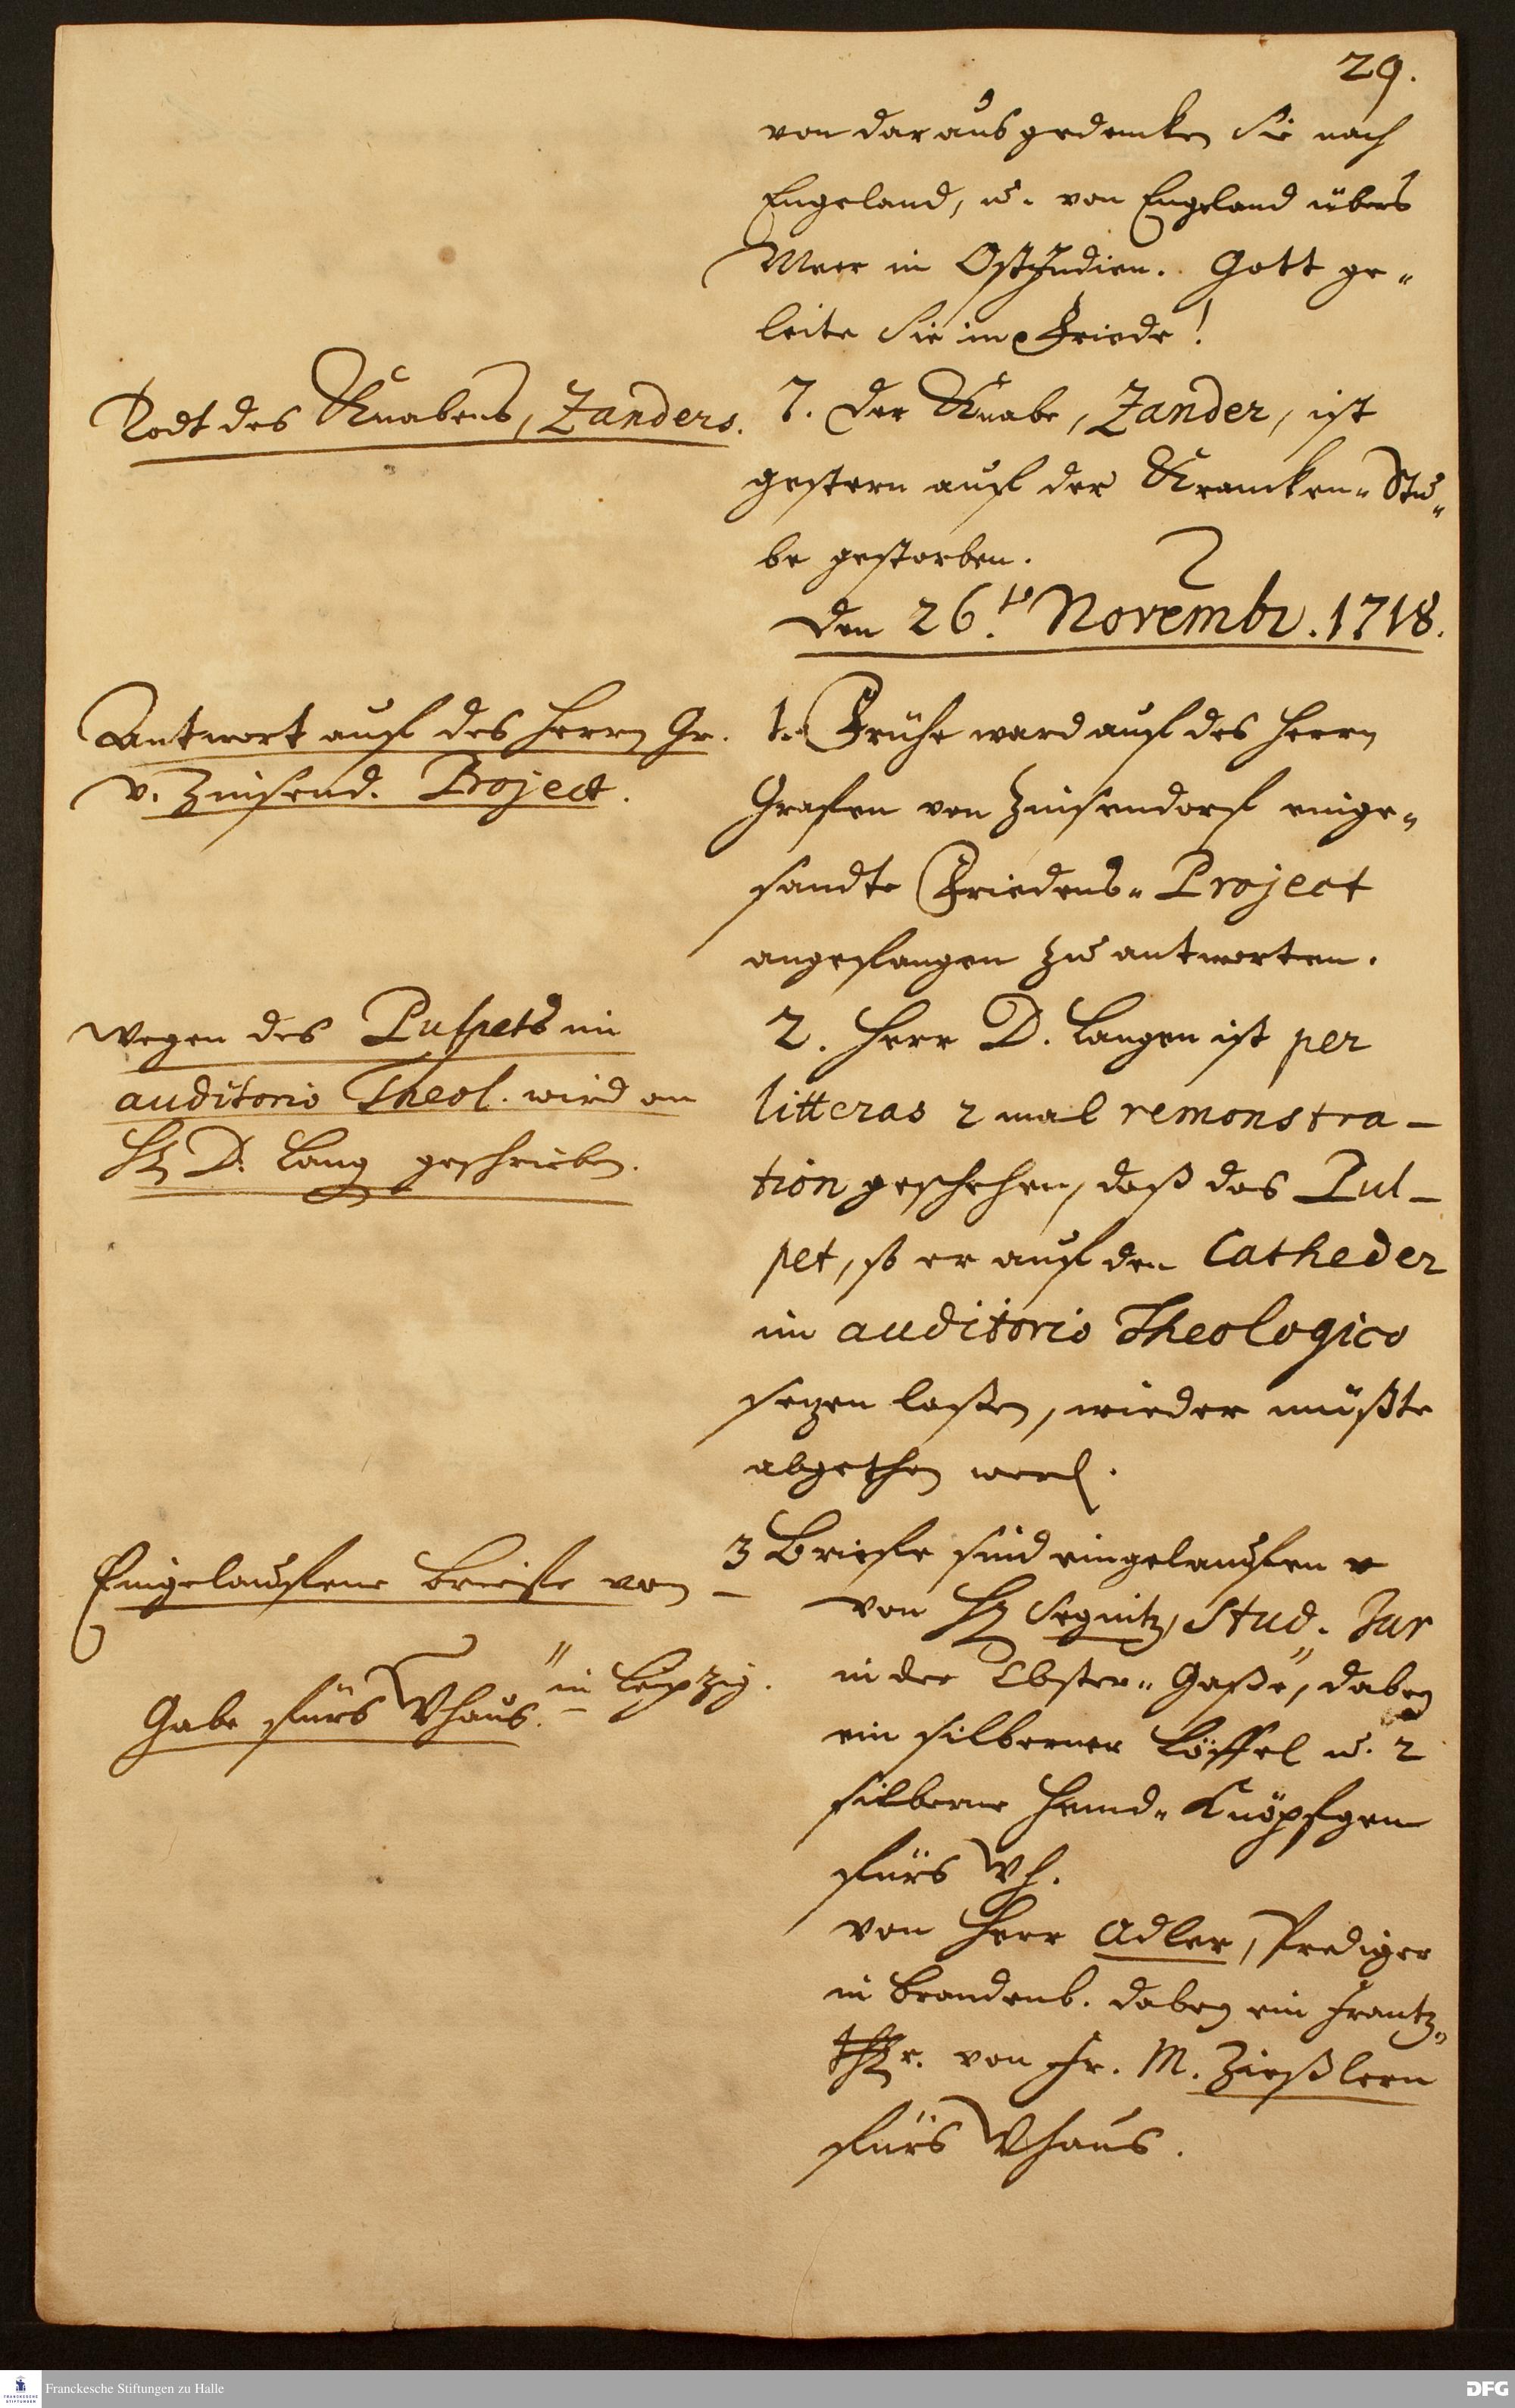 29.
von dar aus gedencken Sie nach
Engeland, u. von Engeland übers
Meer in OstIndien. Gott ge-
leite Sie im Friede!
Todt des Knabens, Zanders.
7. Der Knabe, Zander, ist
gestern auf der Krancken-Stu-
be gestorben.
Den 26.ten Novembr. 1718.
Antwort auf des Herrn Gr.
v. Zinsend. Project.
1. Frühe ward auf des Herrn
Grafen von Zinsendorf einge-
sandte Friedens-Project
angefangen zu antworten.
Wegen des Pulpets im
auditorio Theol. wird an
H. D. Lang geschrieben.
2. Herr D. Langen ist per
litteras 2 mal remonstra-
tion geschehen, daß das Pul-
pet, so er auf den Catheder
im auditorio Theologico
setzen laßen, wieder müßte
abgethan werd.
Eingelaufene Briefe von
3 Briefe sind eingelauffen
von H. Segnitz, Stud. Jur
in Leipzig.
Gabe fürs Whaus.
in der Closter-Gaße, dabey
ein silberner Löffel u. 2
silberne Hemd-Knöpfgen
fürs Wh.
von Herr Adler, Prediger
in Brandenb. dabey ein Frantz-
thlr. von Fr. M. Zießlern
fürs Whaus.
Franckesche Stiftungen zu Halle
DFG